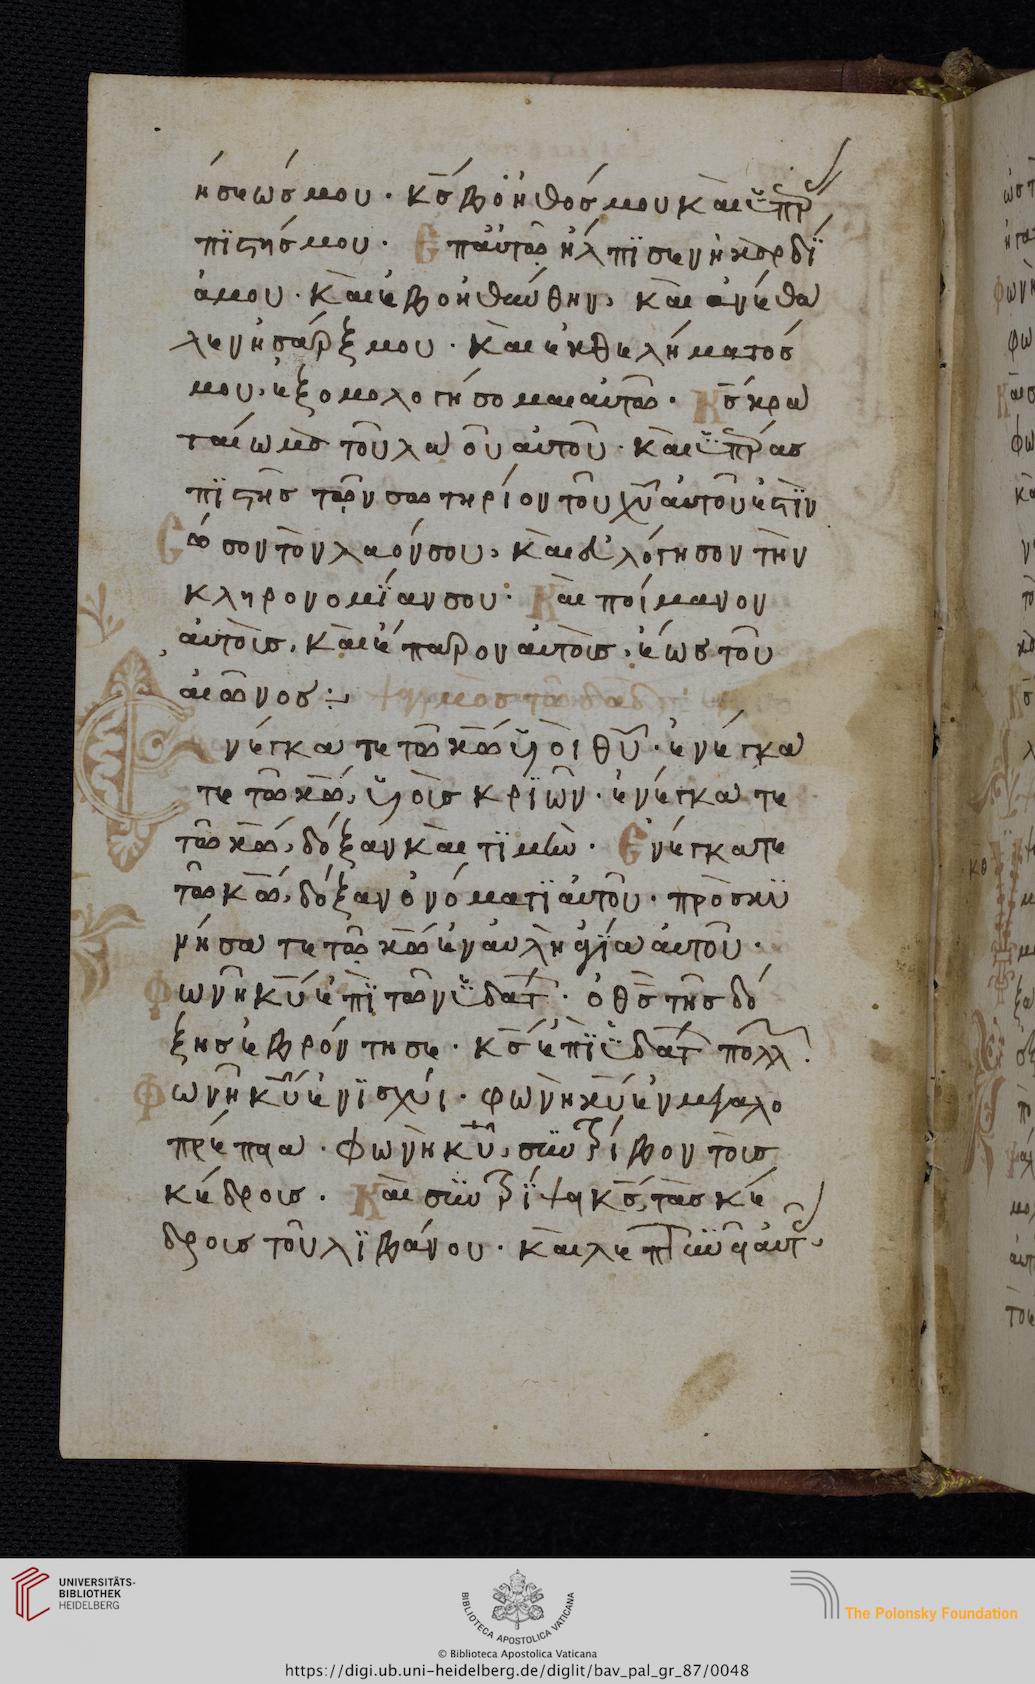 ήσεώσ μου · κ̅σ βοηθόσ μου καὶ ϋπρ
πϊστήσ μου · Ἐπ αὐτῶ ἤλπϊσεν ἡ καρδϊ
ά μου · καὶ ἐβοηθήθην, καὶ ἀνέθα
λεν ἡ σάρξ μου · καὶ ἐκ θελήματόσ
μου, ἐξομολογήσομαι αὐτῶ · Κ̅σ κρα
ταίωμα τοῦ λαοῦ αὐτοῦ · καὶ ϋπερασ
πϊστὴσ τῶν σωτηρίον τοῦ χ̅υ αὐτοῦ ἐστϊν
Σῶσον τὸν λαόν σου, καὶ εὐλόγησον τὴν
κληρονομϊαν σου · Καὶ ποίμανον
αὐτοὶσ, καὶ ἔπαρον αὐτοὶσ, ἕωσ τοῦ
αἰῶνοσ :~ ψαλμὸσ τῶ δα̅δ
Ἐνέγκατε τῶ κ̅ω ϋιοὶ θ̅υ · ἐνέγκα
τε τῶ κ̅ω, ϋιοὶσ κρϊῶν · ἐνέγκατε
τῶ κ̅ω, δόξαν καὶ τϊμὴν · Ἐνέγκατε
τῶ κ̅ω, δόξαν ὀνόματϊ αὐτοῦ · προσκυ
νήσατε τῶ κ̅ω ἐν αὐλῆ ἁγϊα αὐτοῦ ·
Φωνὴ κ̅υ ἐπϊ τῶν ϋδάτ · ὁ θ̅σ τῆσ δό
ξησ ἐβρόντησε · κ̅σ ἐπϊ ϋδάτ πολλ
Φωνὴ κ̅υ ἐν ϊσχύι · φωνὴ κ̅υ ἐν μεγαλο
πρέπεια · φωνὴ κ̅υ, συντρίβοντοισ
κέδροισ · Καὶ συντρϊψει κ̅σ, τὰσ κέ
δροισ τοῦ λϊβάνου · καὶ λεπτϋνεῖ αὐτ
κθ
UNIVERSITÄTS-
BIBLIOTHEK
HEIDELBERG
BIBLIOTECA APOSTOLICA VATICANA
© Biblioteca Apostolica Vaticana
The Polonsky Foundation
https://digi.ub.uni-heidelberg.de/diglit/bav_pal_gr_87/0048